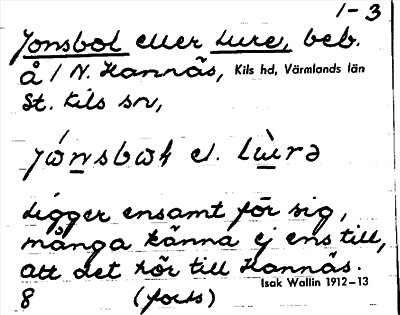 1-3
Jonsbol eller Lure, beb.
å 1/1 N. Hannäs, Kils hd, Värmlands län
St. Kils sn,
jónsbωɫ el. Lùrə
Ligger ensamt för sig,
många känna ej ens till,
att det hör till Hannäs.
Isak Wallin 1912-13
8 (forts)